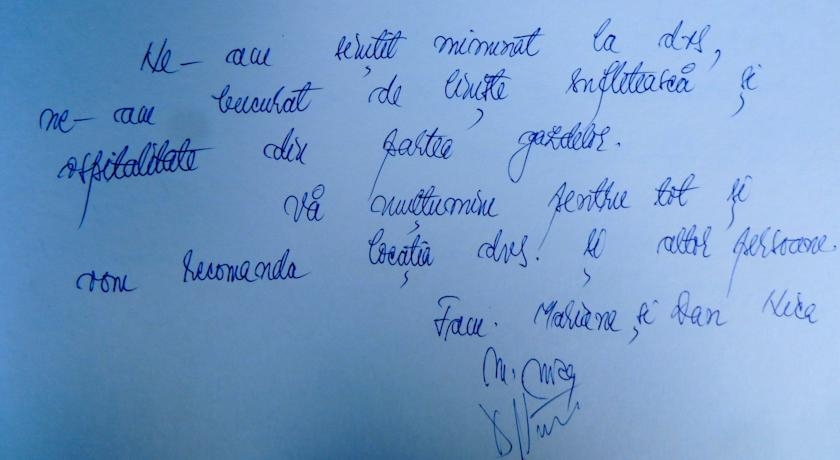 Ne-am simțit minunat la dvs,
ne-am bucurat de liniște sufletească și
ospitalitate din partea gazdelor.
Vă mulțumim pentru tot și
vom recomanda locația dvs. și altor persoane.
Fam. Mariana și Dan Nica